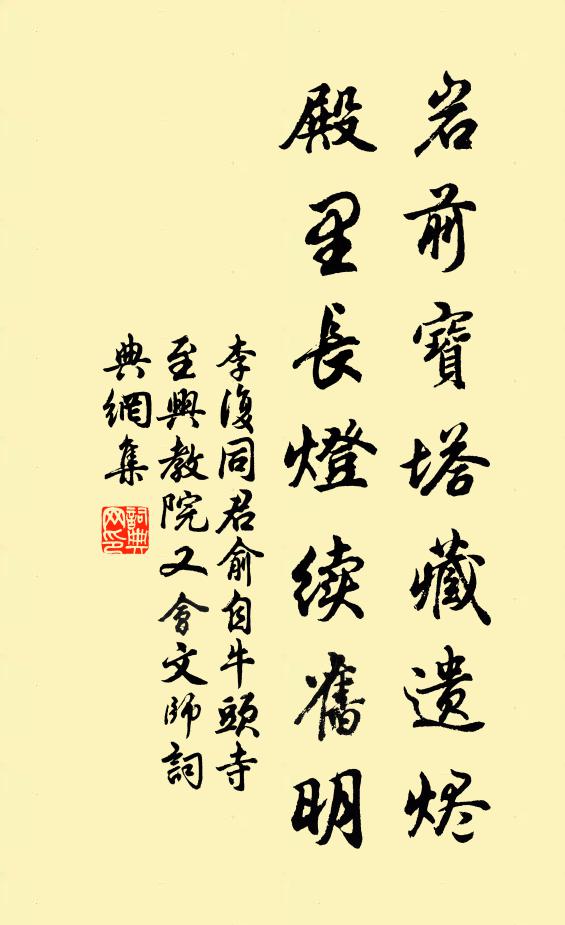 岩前寶塔藏遗烬
殿里長燈续舊明
李復同君俞自牛頭寺
至興教院又會文師詞
典網集
詞典网印